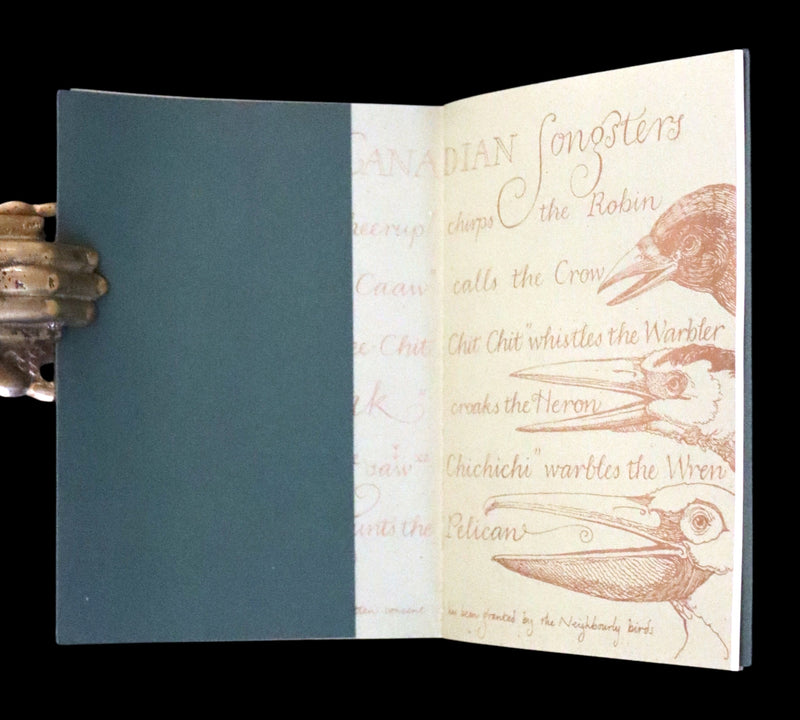 CANADIAN Songsters
heerup chirps the Robin
Caaw" calls the Crow
ee-Chit Chit Chit" whistles the Warbler
croaks the Heron
Chichichi" warbles the Wren
unts the Pelican
consent has been granted by the Neighbourly birds